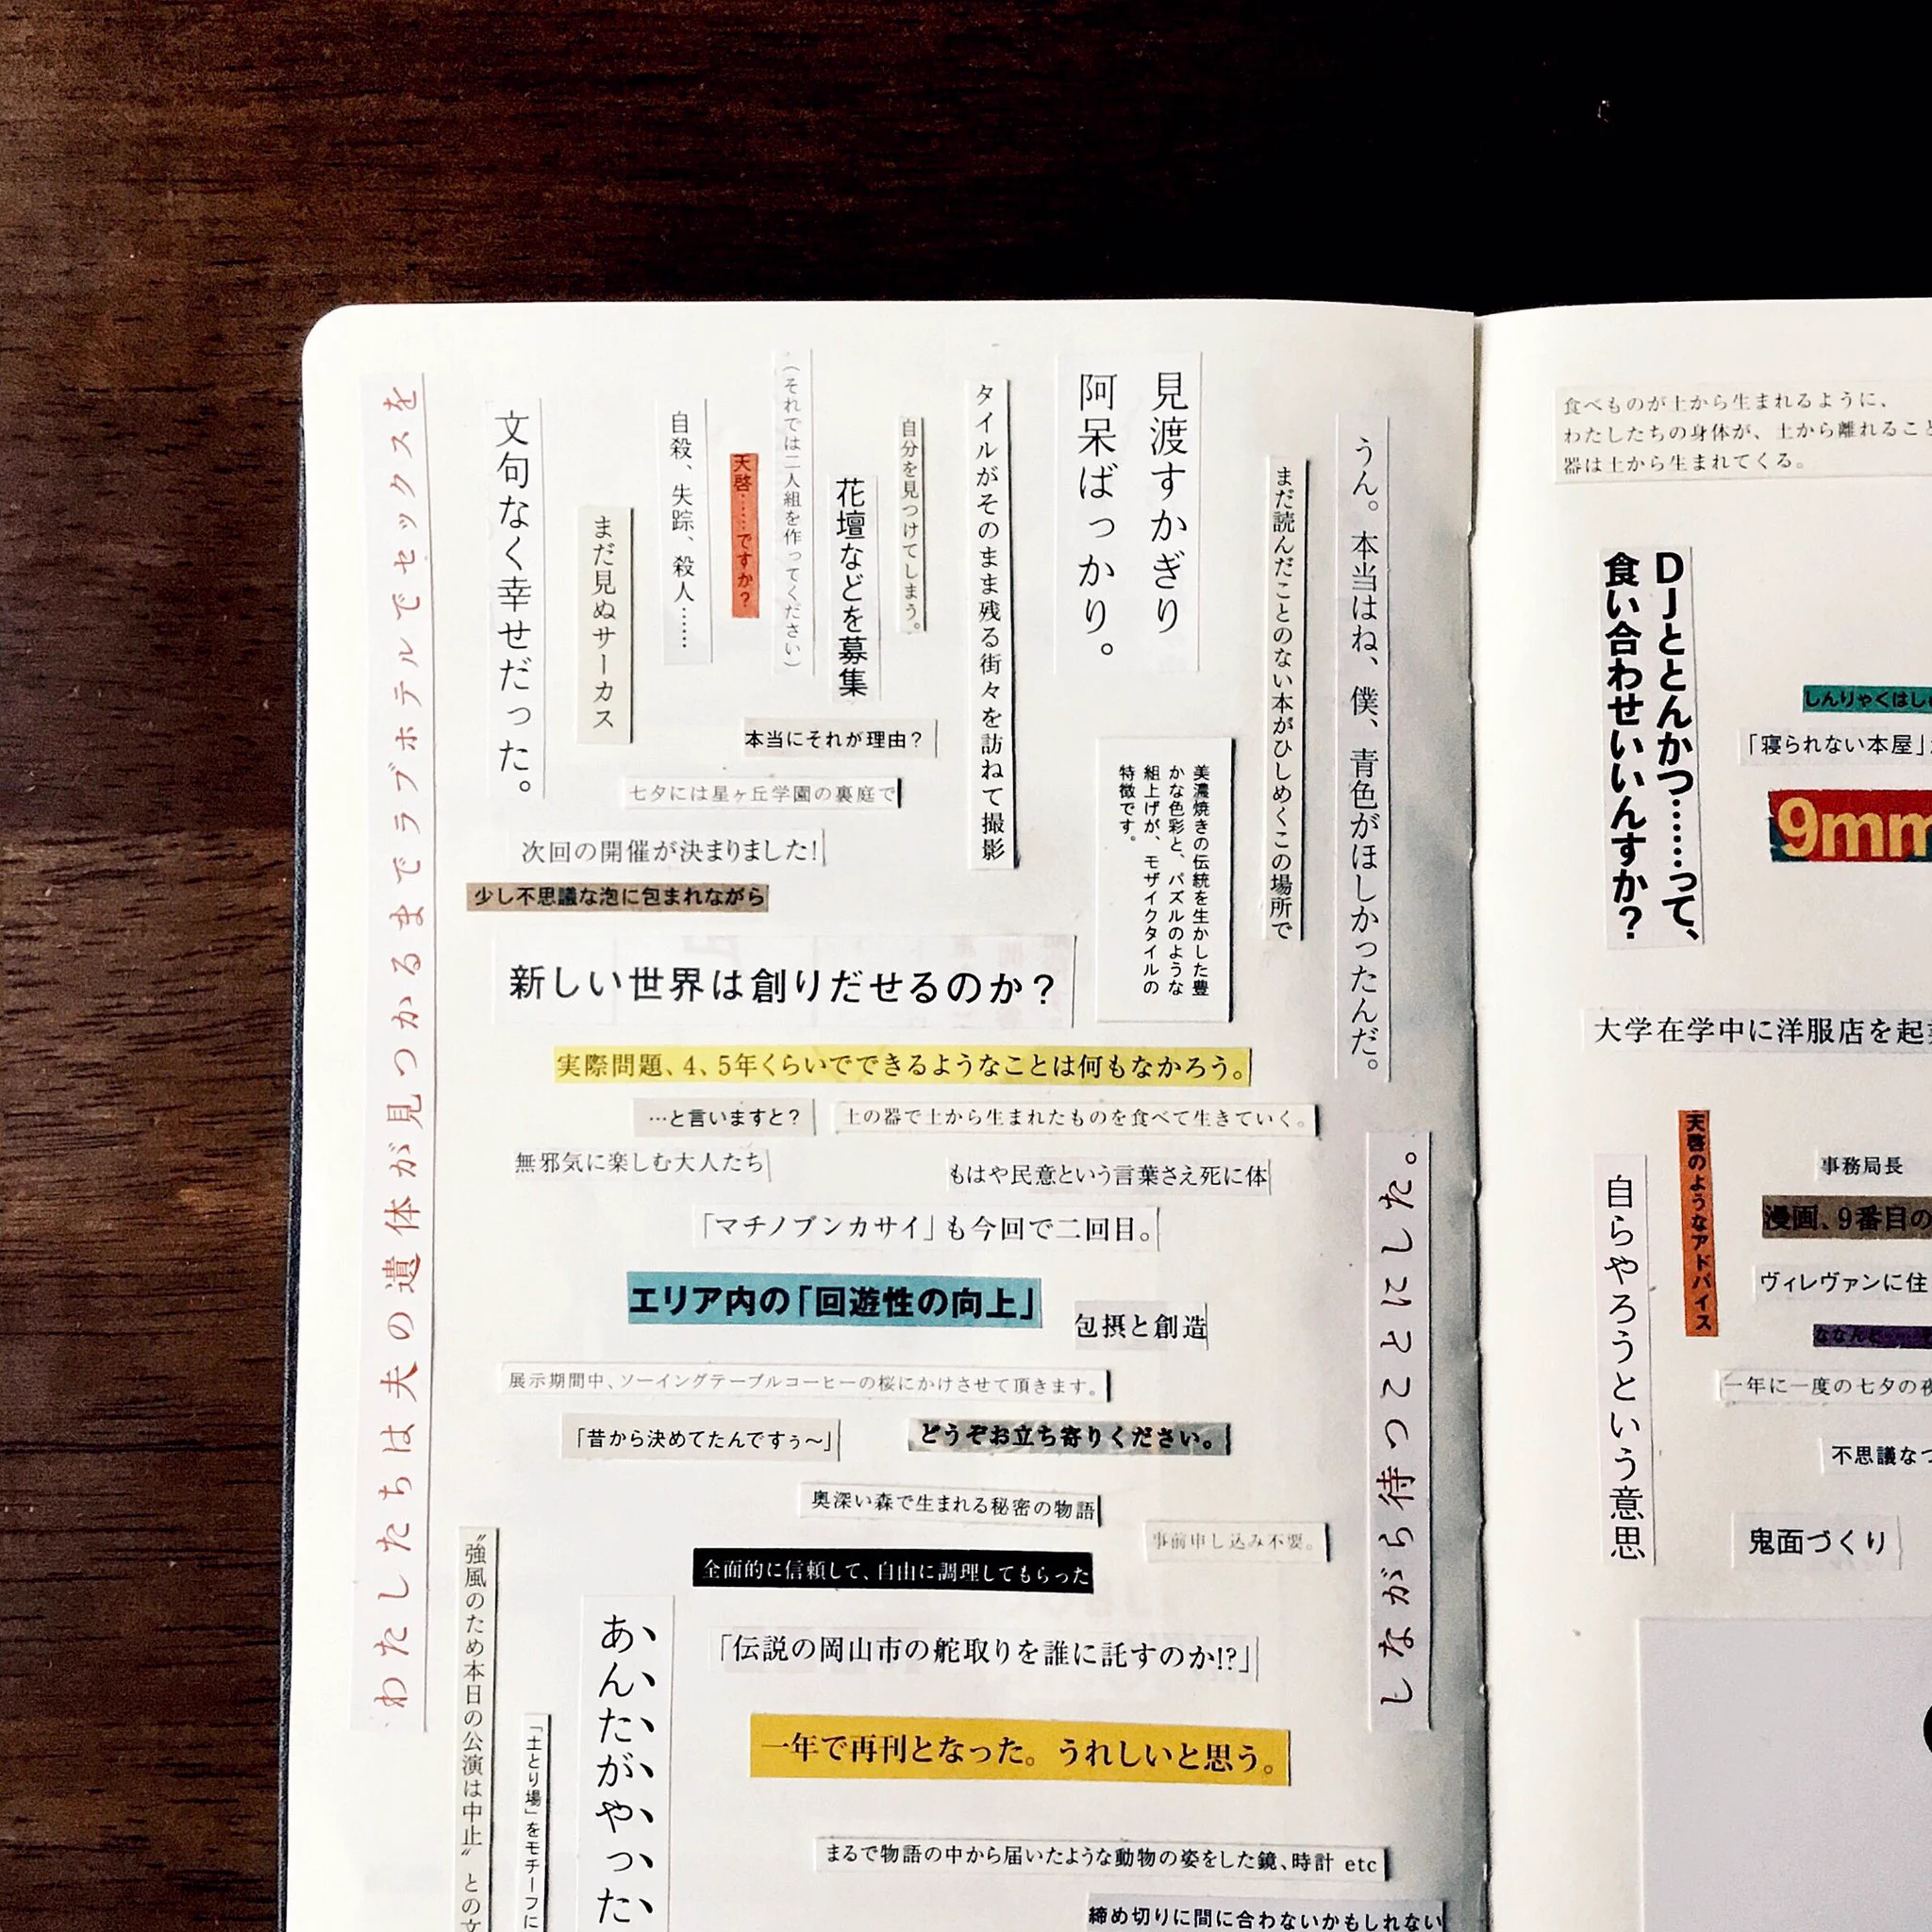 わたしたちは夫の遺体が見つかるまでラブホテルでセックスを
文句なく幸せだった。
まだ見ぬサーカス
自殺、失踪、殺人……
天啓……ですか?
(それでは二人組を作ってください)
花壇などを募集
自分を見つけてしまう。
タイルがそのまま残る街々を訪ねて撮影
見渡すかぎり
阿呆ばっかり。
まだ読んだことのない本がひしめくこの場所で
うん。本当はね、僕、青色がほしかったんだ。
本当にそれが理由?
七夕には星ヶ丘学園の裏庭で
次回の開催が決まりました!
少し不思議な泡に包まれながら
美濃焼きの伝統を生かした豊
かな色彩と、パズルのような
組上げが、モザイクタイルの
特徴です。
新しい世界は創りだせるのか?
実際問題、4、5年くらいでできるようなことは何もなかろう。
…と言いますと?
土の器で土から生まれたものを食べて生きていく。
無邪気に楽しむ大人たち
もはや民意という言葉さえ死に体
「マチノブンカサイ」も今回で二回目。
エリア内の「回遊性の向上」
包摂と創造
展示期間中、ソーイングテーブルコーヒーの桜にかけさせて頂きます。
「昔から決めてたんですぅ〜」
どうぞお立ち寄りください。
奥深い森で生まれる秘密の物語
事前申し込み不要。
全面的に信頼して、自由に調理してもらった
しながら待つことにした。
「伝説の岡山市の舵取りを誰に託すのか!?」
一年で再刊となった。うれしいと思う。
まるで物語の中から届いたような動物の姿をした鏡、時計 etc
締め切りに間に合わないかもしれない
〝強風のため本日の公演は中止〟との文
「土とり場」をモチーフに
あんたがやった
食べものが土から生まれるように、
わたしたちの身体が、土から離れること
器は土から生まれてくる。
DJととんかつ……って、
食い合わせいいんすか?
しんりゃくはし
「寝られない本屋」
9mm
大学在学中に洋服店を起
天啓のようなアドバイス
自らやろうという意思
事務局長
漫画、9番目の
ヴィレヴァンに住
一年に一度の七夕の夜
不思議なつ
鬼面づくり